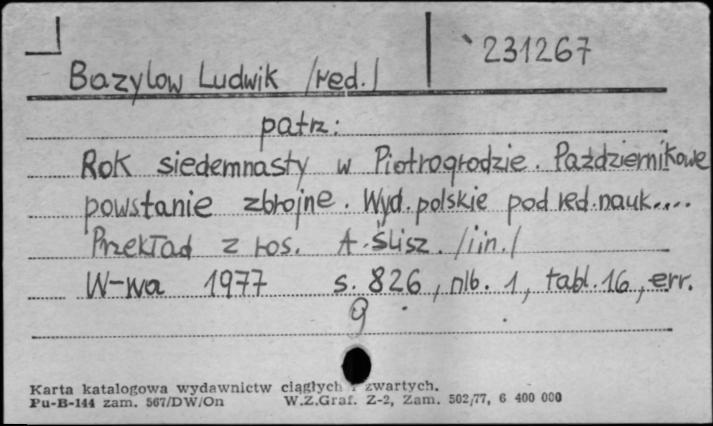 231267
Bazylow Ludwik /red./
patrz:
Rok siedemnasty w Piotrogrodzie. Październikowe
powstanie zbrojne. Wyd. polskie pod red. nauk....
Przekład z ros. A. Ślisz. /i in./
W-wa 1977 s. 826, nlb. 1, tabl. 16, err.
9
Karta katalogowa wydawnictw ciągłych i zwartych.
Pu-B-144 zam. 567/DW/On W.Z.Graf. Z-2, Zam. 502/77, 6 400 000